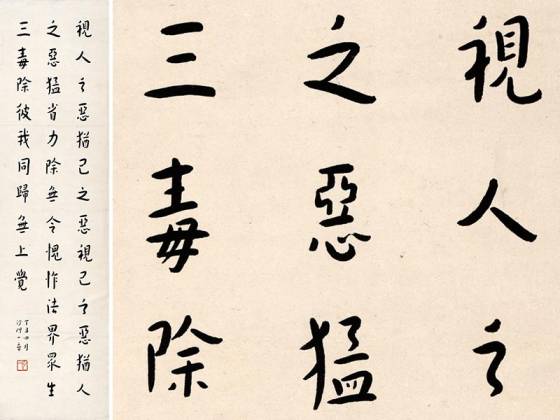 視人之惡猶己之惡視己之惡猶人
之惡猛省力除無令愧怍法界眾生
三毒除彼我同歸無上覺
沙門一音
視人之
之惡猛
三毒除